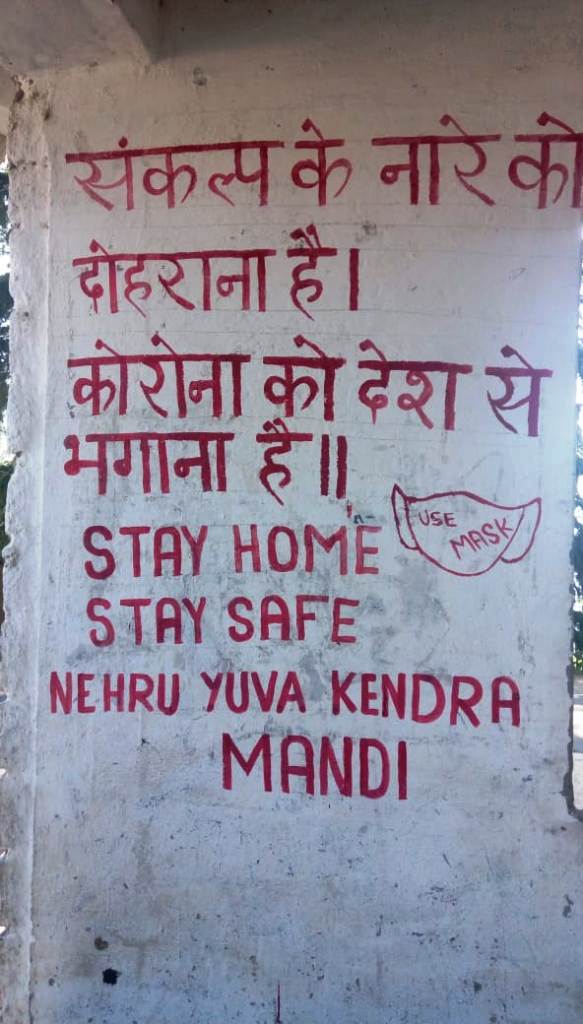 संकल्प के नारे को
दोहराना है।
कोरोना को देश से
भगाना है॥
USE
MASK
STAY HOME
STAY SAFE
NEHRU YUVA KENDRA
MANDI